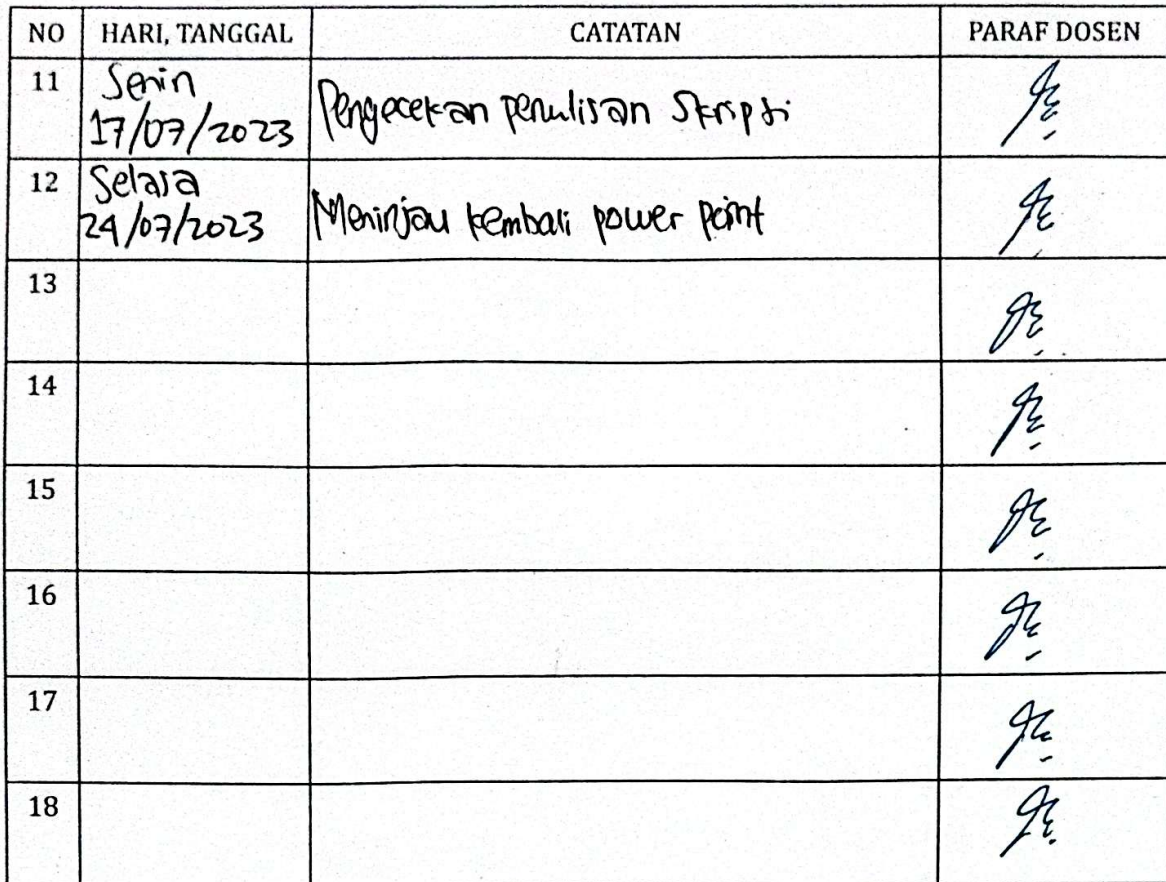 NO HARI, TANGGAL CATATAN PARAF DOSEN
11 Senin
17/07/2023 Pengecekan penulisan Skripsi
12 Selasa
24/07/2023 Meninjau kembali power point
13
14
15
16
17
18